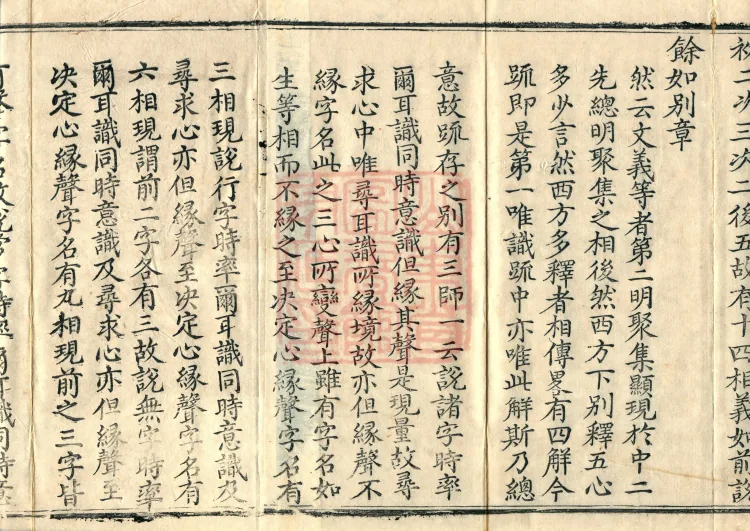 初二次三次二後五故有十四相義如前說
餘如別章
然云文義等者第二明聚集顯現於中二
先總明聚集之相後然西方下別釋五心
多少言然西方多釋者相傳畧有四解今
䟽即是第一唯識䟽中亦唯此解斯乃總
意故䟽存之別有三師一云說諸字時率
爾耳識同時意識但緣其聲是現量故尋
求心中唯尋耳識所緣境故亦但緣聲不
緣字名此之三心所變聲上雖有字名如
生等相而不緣之至决定心緣聲字名有
三相現說行字時率爾耳識同時意識及
尋求心亦但緣聲至决定心緣聲字名有
六相現謂前二字各有三故說無字時率
爾耳識同時意識及尋求心亦但緣聲至
决定心緣聲字名有九相現前之三字皆
字名故說常字時率爾耳識同時意